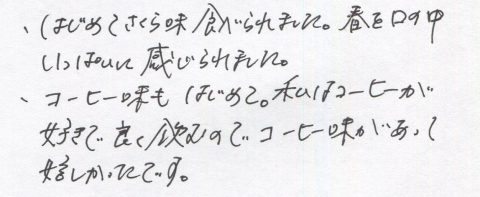 、はじめてさくら味食べられました。春を口の中
いっぱいに感じられました。
、コーヒー味もはじめて。私はコーヒーが
好きで良く飲むのでコーヒー味があって
嬉しかったです。